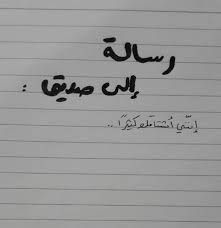 رسالة
إلى صديق :
إنني أشتاقك كثيرًا ..